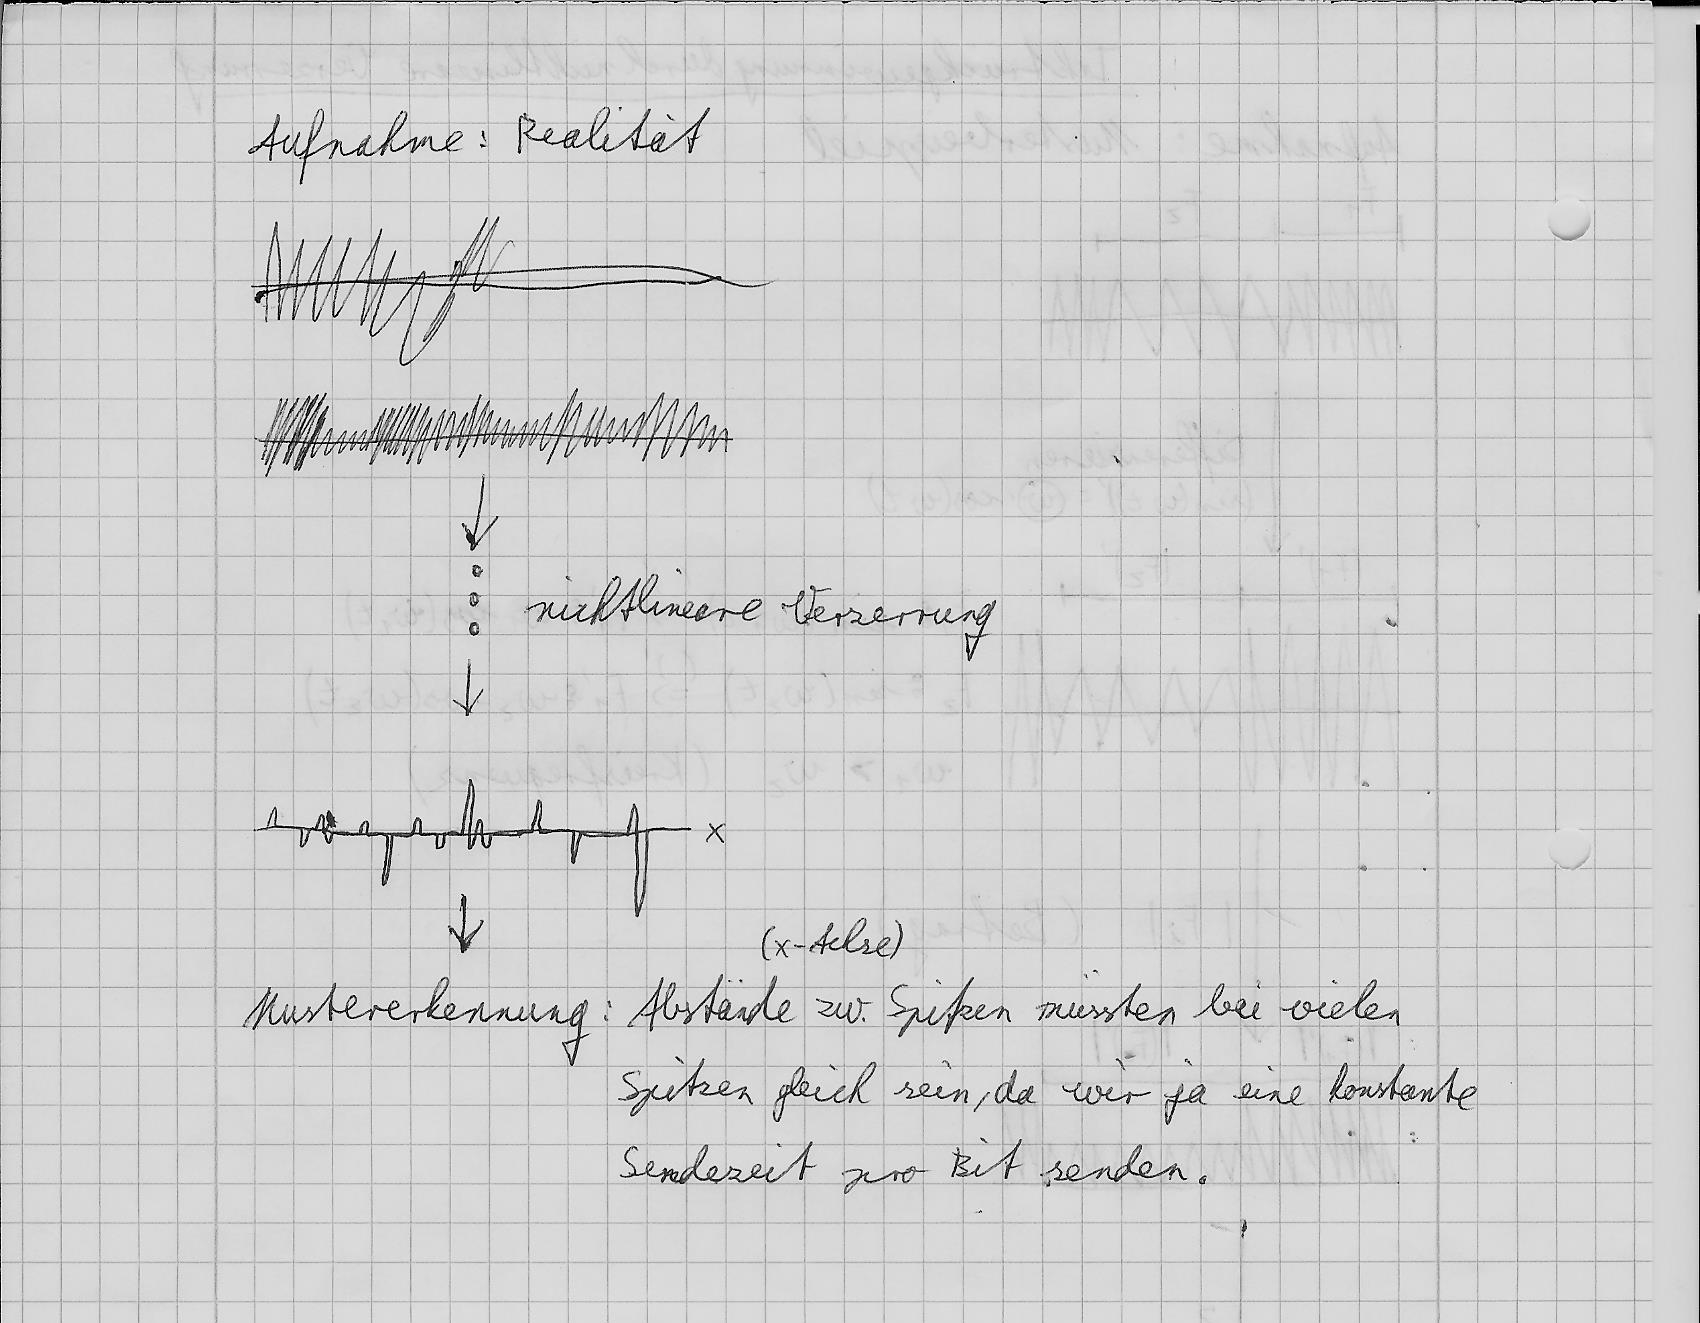 Aufnahme: Realität
nichtlineare Verzerrung
x
(x-Achse)
Mustererkennung: Abstände zw. Spitzen müssten bei vielen
Spitzen gleich sein, da wir ja eine konstante
Sendezeit pro Bit senden.